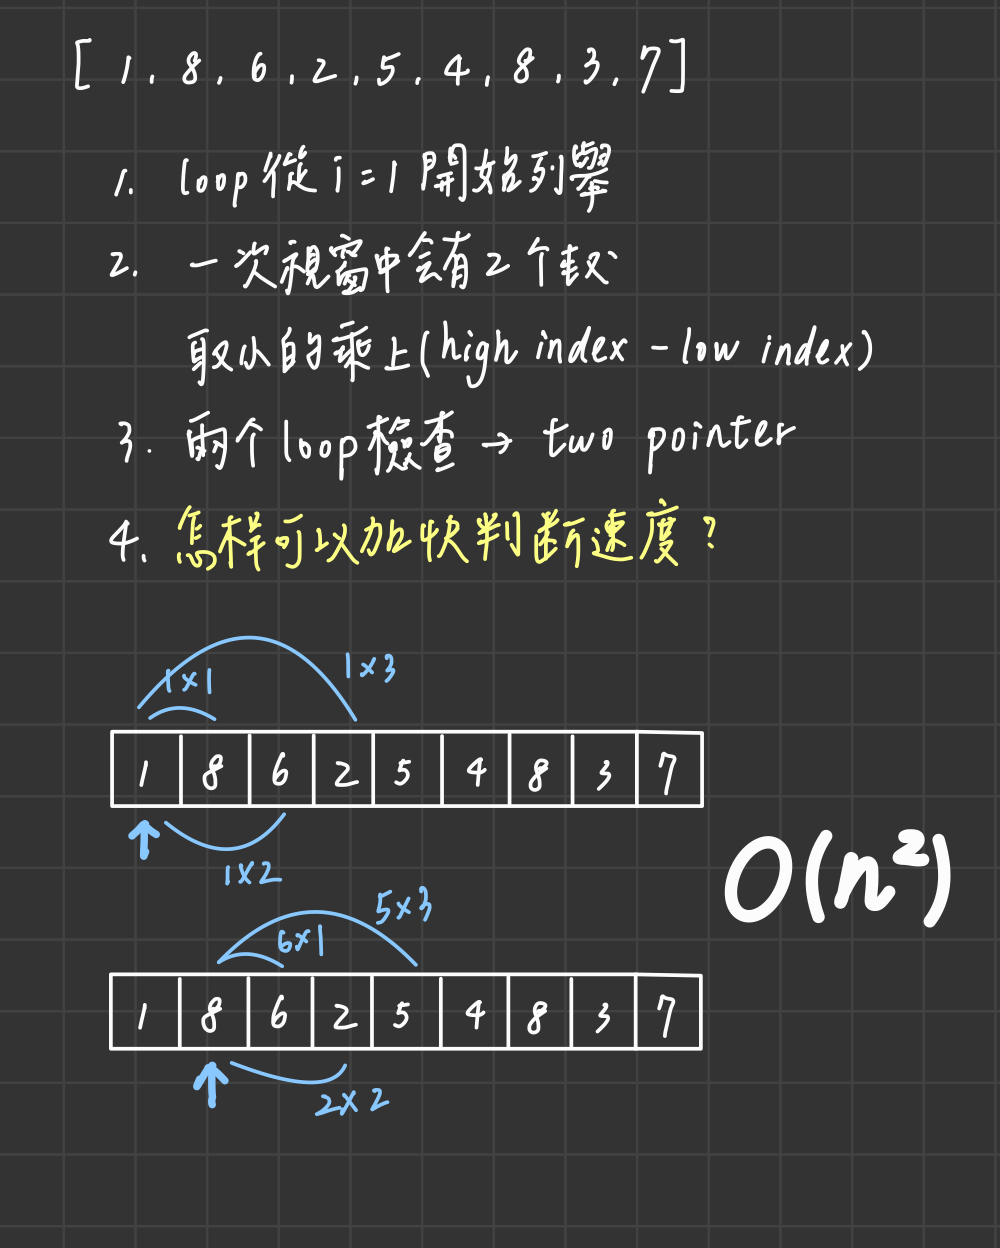 [ 1 , 8 , 6 , 2 , 5 , 4 , 8 , 3 , 7 ]
1. loop 從 i = 1 開始列舉
2. 一次視窗中会有 2 个数
取小的乘上(high index - low index)
3. 兩个loop檢查 → two pointer
4. 怎样可以加快判断速度?
1×3
1×1
1 8 6 2 5 4 8 3 7
1×2
O(n²)
5×3
6×1
1 8 6 2 5 4 8 3 7
2×2